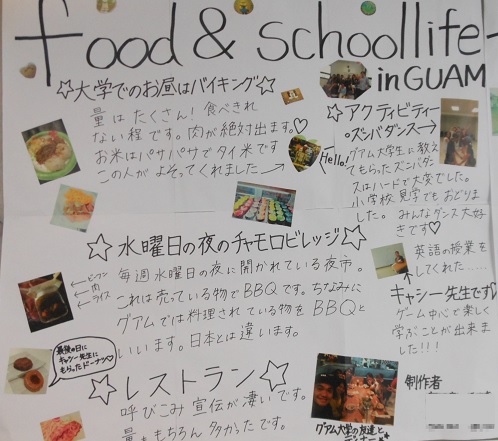 food & schoollife
in GUAM
☆大学でのお昼はバイキング☆
量はたくさん!食べきれ
ない程です。肉が絶対出ます。♡
お米はパサパサでタイ米です
この人がよそってくれました→
Hello!
☆アクティビティー
・ズンバダンス→
グアム大学生に教え
てもらったズンバダン
スはハードで大変でした。
小学校見学でもおどりま
した。みんなダンス大好
きです♡
☆水曜日の夜のチャモロビレッジ☆
毎週水曜日の夜に開かれている夜市。
これは売っている物でBBQです。ちなみに
グアムでは料理されている物をBBQと
いいます。日本とは違います。
←ビーフン
←肉
←ライス
英語の授業を
してくれた……
キャシー先生です♡
ゲーム中心で楽しく
学ぶことが出来ま
した!!!
最後の日に
キャシー先生に
もらったドーナツ♡
☆レストラン☆
呼びこみ宣伝が凄いです。
量ももちろん多かったです。
グアム大学の友達と
制作者